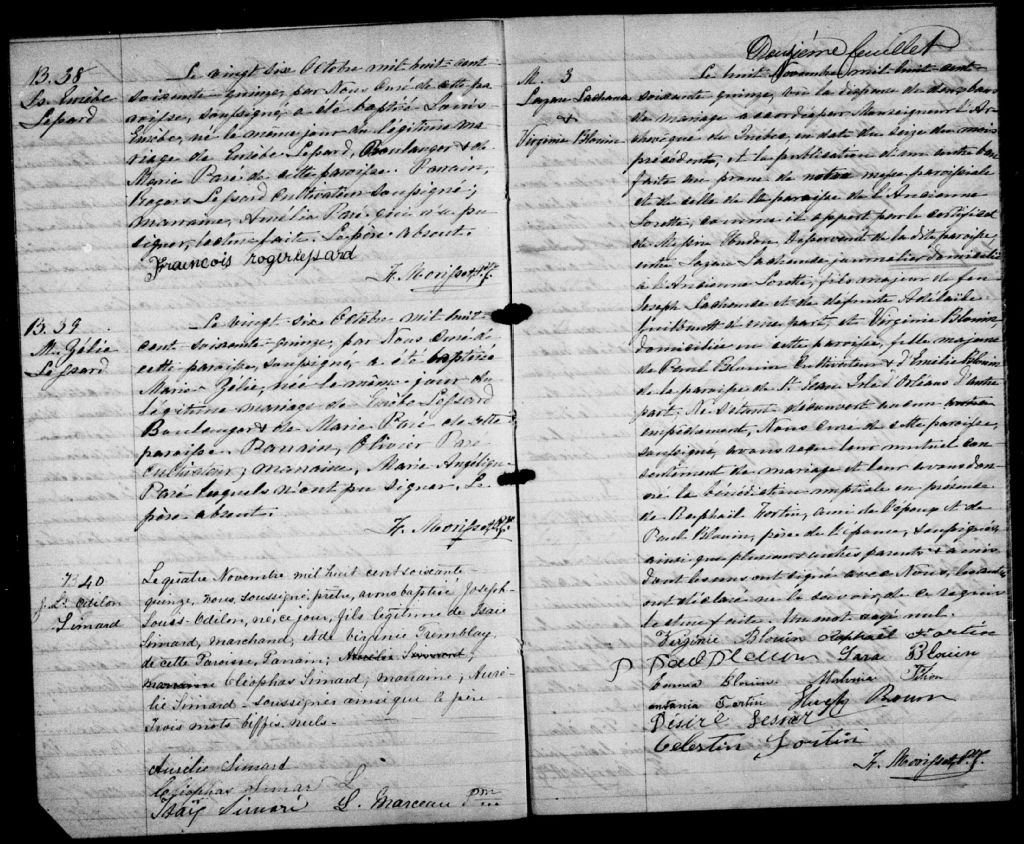 B. 38
Ls. Eusèbe
Lessard
Le vingt six Octobre mil huit cent
soixante-quinze, par Nous Curé de cette pa-
roisse, soussigné a été baptisé Louis
Eusèbe, né le même jour du légitime ma-
riage de Eusèbe Lessard, Boulanger & de
Marie Paré de cette paroisse. Parrain,
Rogers Lessard Cultivateur soussigné;
marraine, Amélia Paré qui n'a pu
signer, lecture faite. Le père absent.
Francois roger lessard
F. Morisset, Ptr.
B. 39
M. Zélie
Lessard
Le vingt six Octobre mil huit
cent soixante-quinze, par Nous Curé de
cette paroisse, soussigné, a été baptisée
Marie-Zélie, née le même jour du
légitime mariage de Eusèbe Lessard
Boulanger & de Marie Paré de cette
paroisse. Parrain, Olivier Paré
cultivateur; marraine, Marie Angélique
Paré lesquels n'ont pu signer. Le
père absent.
F. Morisset, Ptr.
B 40
J. Ls. Odilon
Simard
Le quatre Novembre mil huit cent soixante-
quinze, nous, soussigné, prêtre, avons baptisé Joseph-
Louis-Odilon, né, ce jour, fils légitime de Isaïe
Simard, marchand, & de Virginie Tremblay,
de cette Paroisse, Parrain; Aurélie Simard,
marraine Cléophas Simard; marraine, Auré-
lie Simard - Soussignés ainsi que le père
Trois mots biffés nuls.
Aurélie Simard
Cléophas Simar
Isaÿ Simard L. Marceau Ptre
Deuxième feuillet
M. 3
Lazare Lachance
&
Virginie Blouin
Le huit Novembre mil huit cent
soixante quinze, vu la dispense de deux bans
de mariage accordée par Monseigneur l'Ar-
chevêque de Québec, en date du seize du mois
précédent, et la publication d'un autre ban
faite au prône de notre messe paroissiale
et de celle de la paroisse de l'Ancienne
Lorette, comme il appert par le certificat
de Messire Hudon Desservant de la dite paroisse,
entre Lazare Lachance journalier domicilié
à l'Ancienne Lorette, fils majeur de feu
Joseph Lachance et de défunte Adélaide
d'une part; et Virginie Blouin
domiciliée en cette paroisse, fille majeure
de Paul Blouin Cultivateur & d'Emélie Blouin
de la paroisse de St Jean Isle d'Orléans d'autre
part. Ne s'étant découvert aucun
empêchement, Nous Curé de cette paroisse,
soussigné, avons reçu leur mutuel con-
sentement de mariage et leur avons don-
né la bénédiction nuptiale en présence
de Raphaël Fortin, ami de l'époux et de
Paul Blouin, père de l'épouse, soussignés,
ainsi que plusieurs autres parents & amis
dont les uns ont signé avec Nous, les autres
ont déclaré ne le savoir, de ce requis
lecture faite. Un mot rayé nul.
Virginie Blouin Raphaël Fortin
Paul Blouin Sara Blouin
Emma Blouin Malvina
Fortin
Désiré Lessar
Célestin Fortin
F. Morisset Ptr.